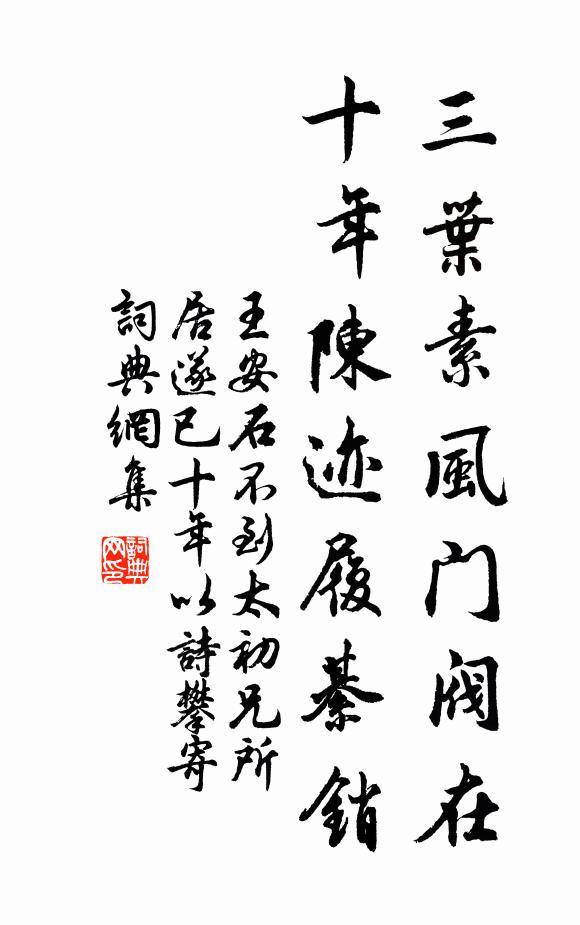 三葉素風门阀在
十年陳迹履綦銷
王安石不到太初兄所
居遂已十年以詩攀寄
詞典網集
詞典网印